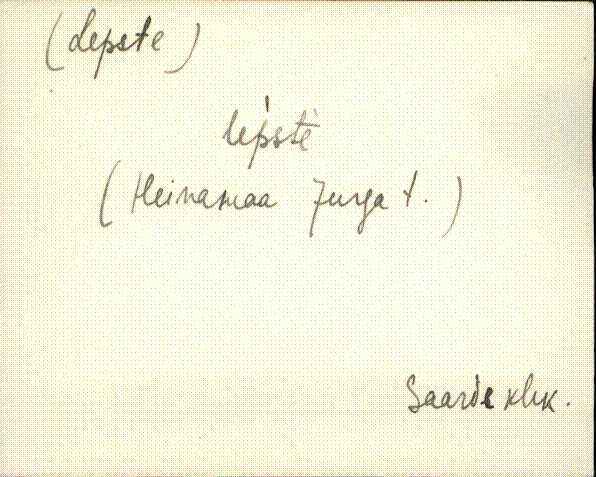 (Lepste)
lepste
(Heinamaa Jurga t.)
Saarde khk.